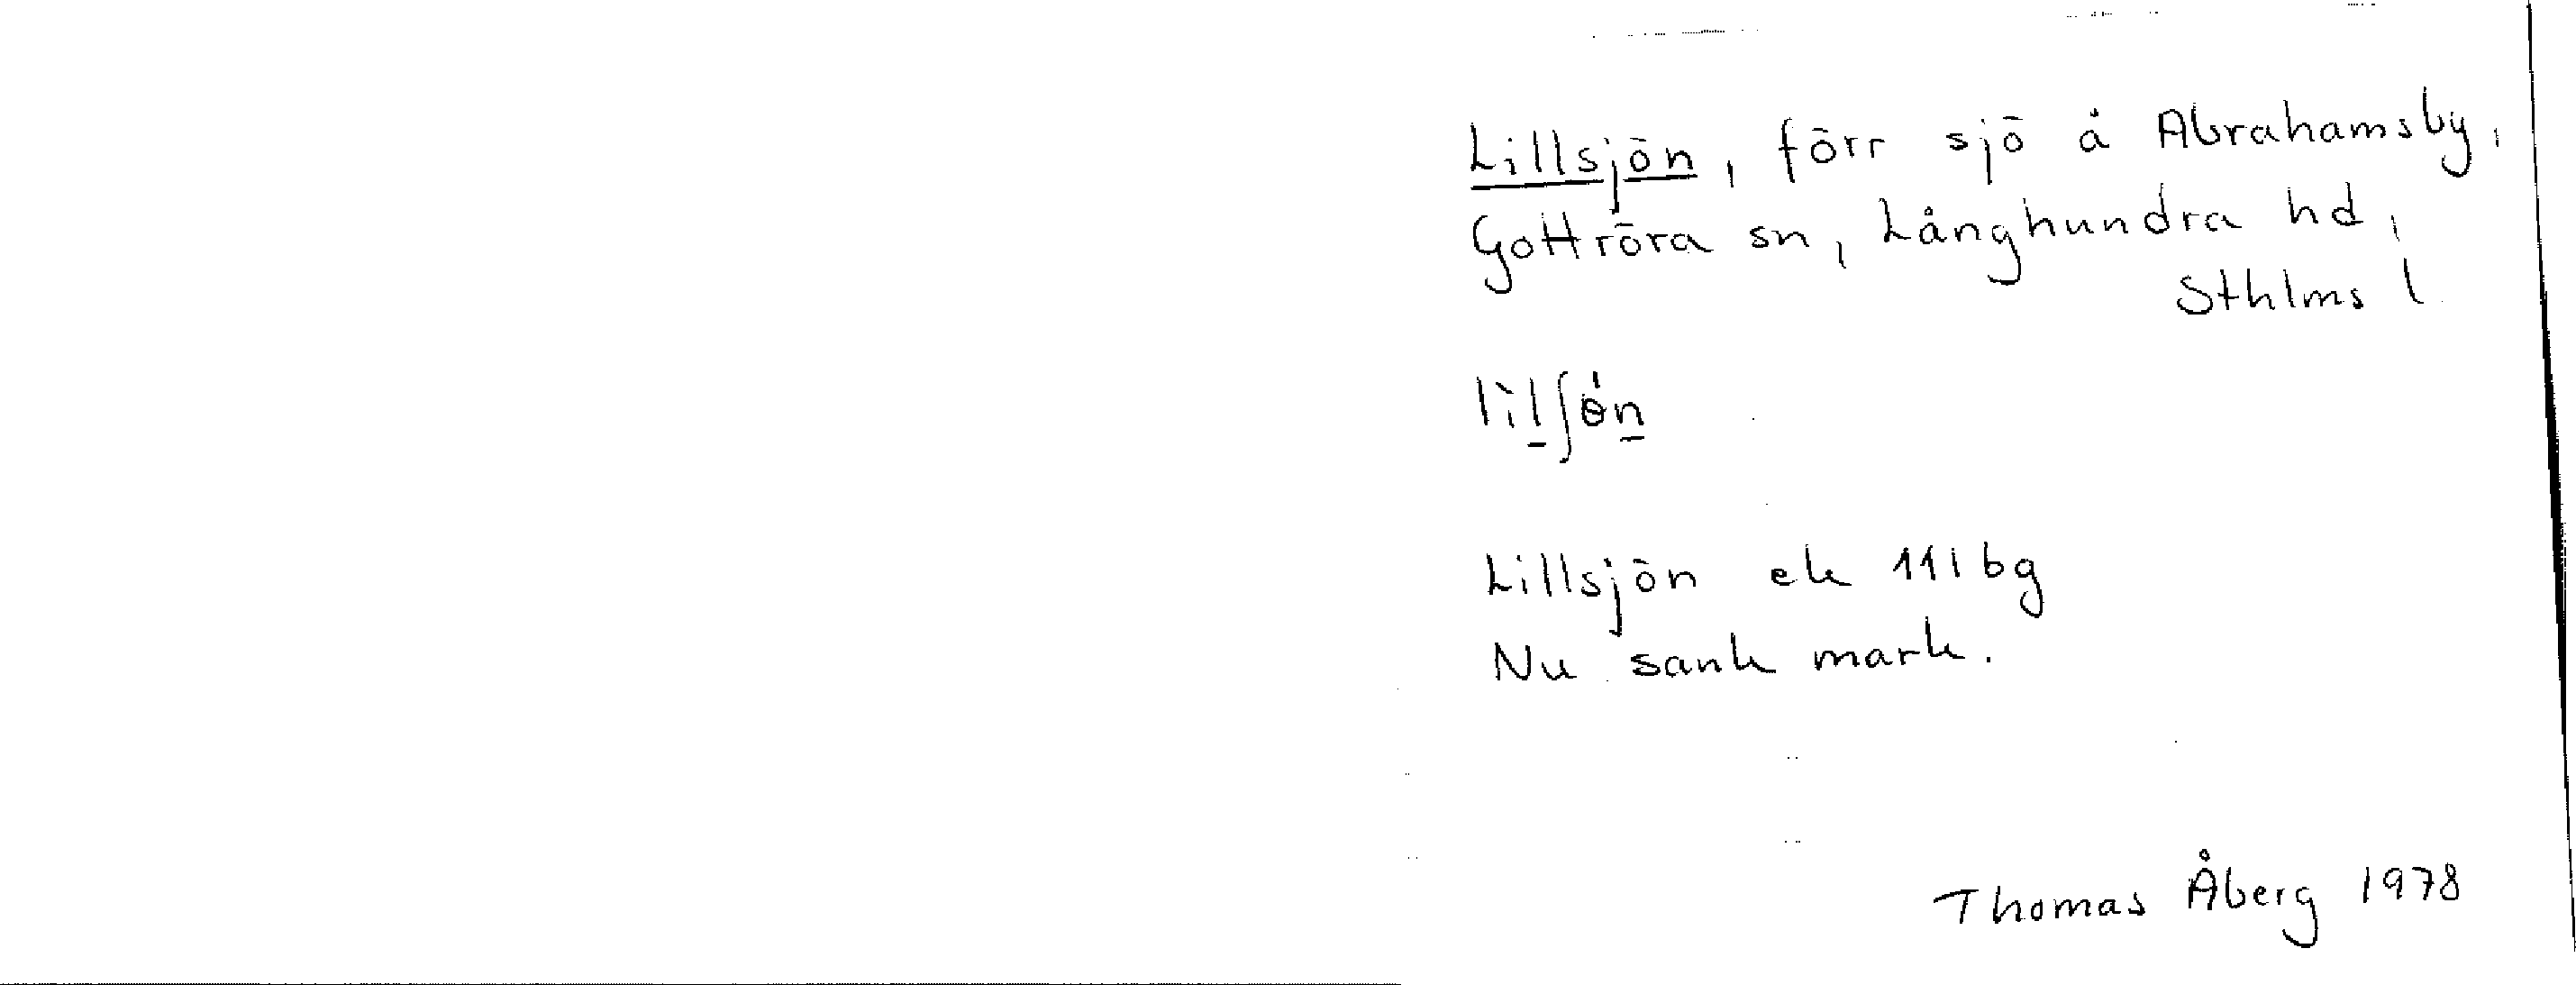 Lillsjön, förr sjö å Abrahamsby,
Gottröra sn, Långhundra hd,
Sthlms l
lìlʃɵ́n
Lillsjön ek 11I6g
Nu sank mark.
Thomas Åberg 1978